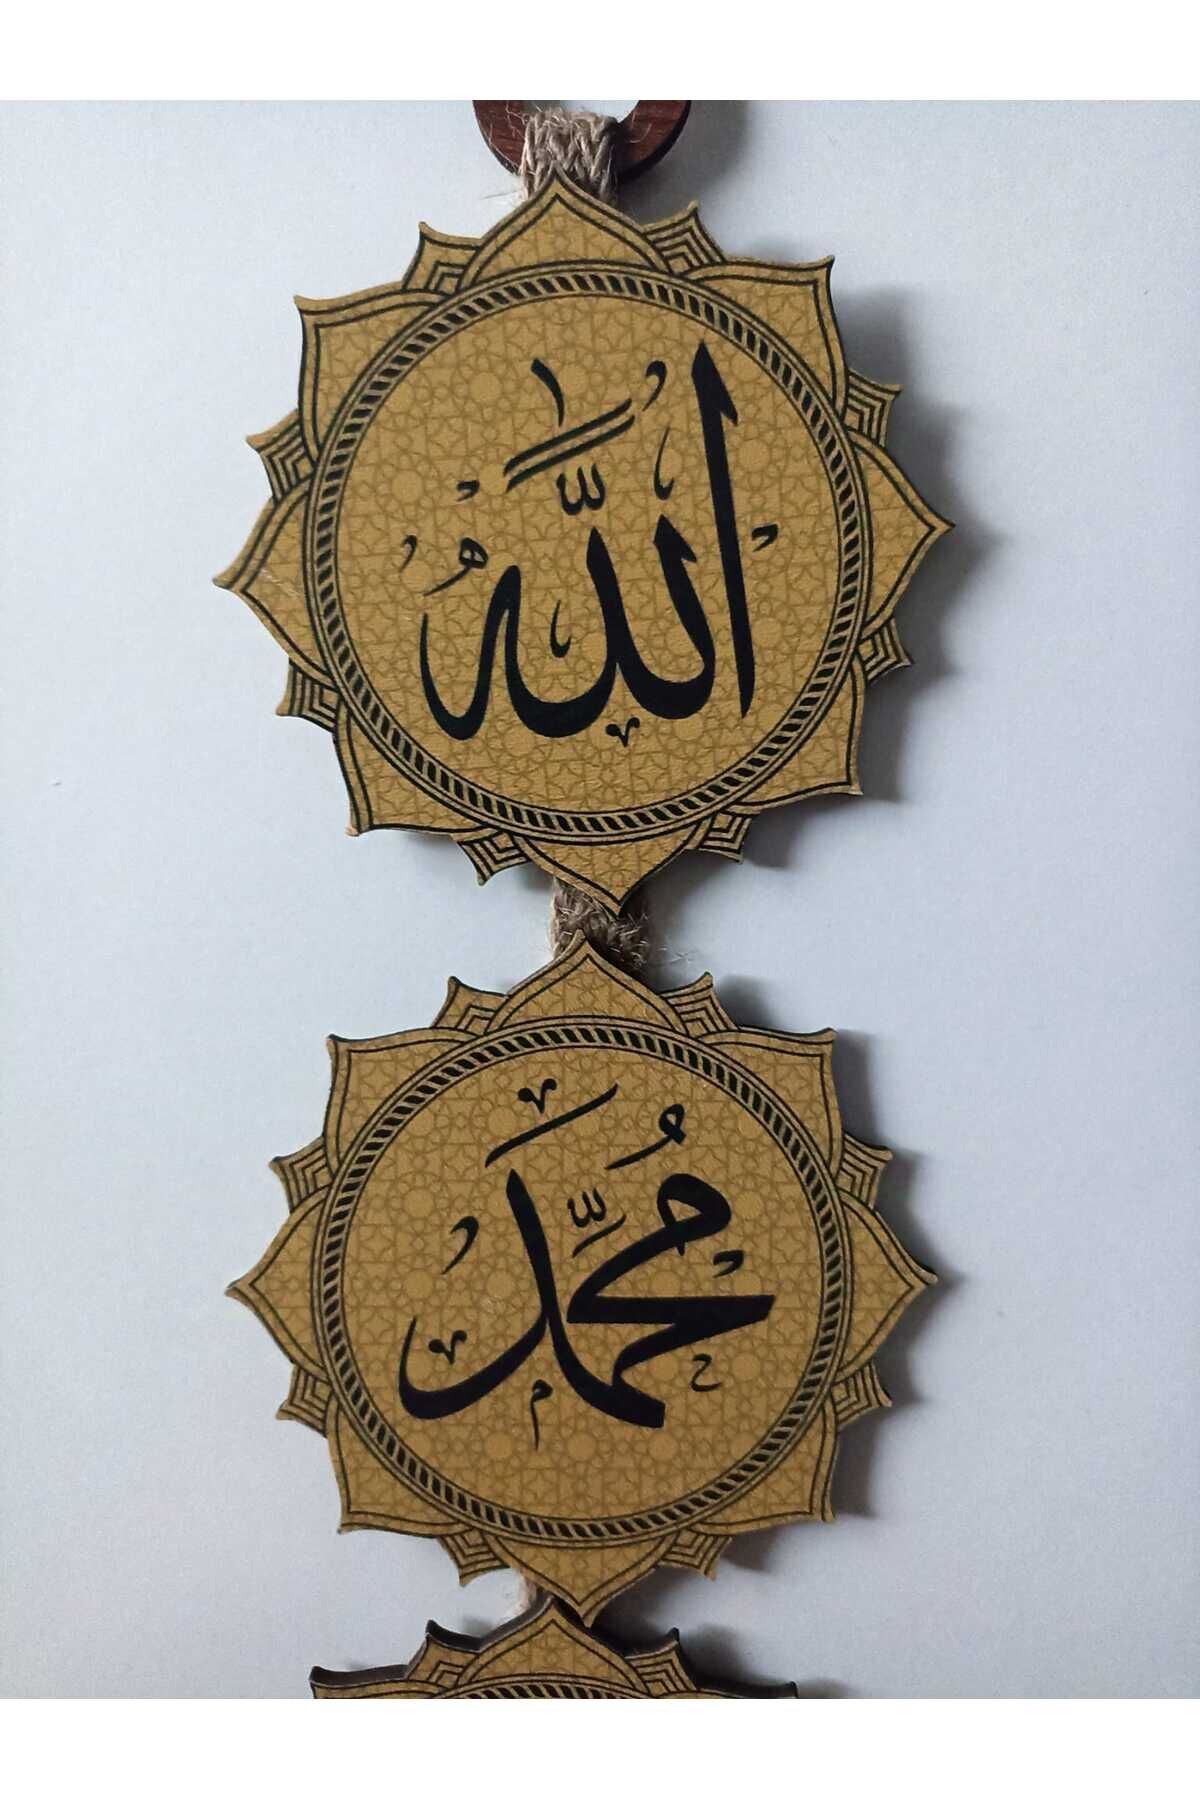 اللّٰهُ
مُحَمَّد